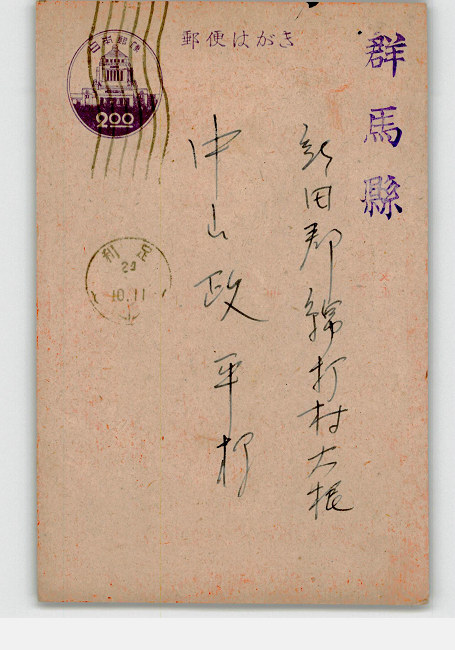 日本郵便
2.00
郵便はがき
群馬縣
新田郡綿打村大根
中山政平様
足利
23
10.11